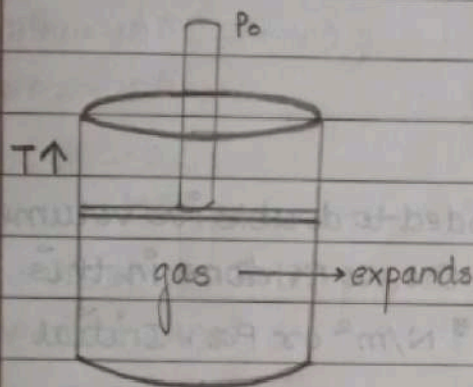 P₀
T↑
gas → expands